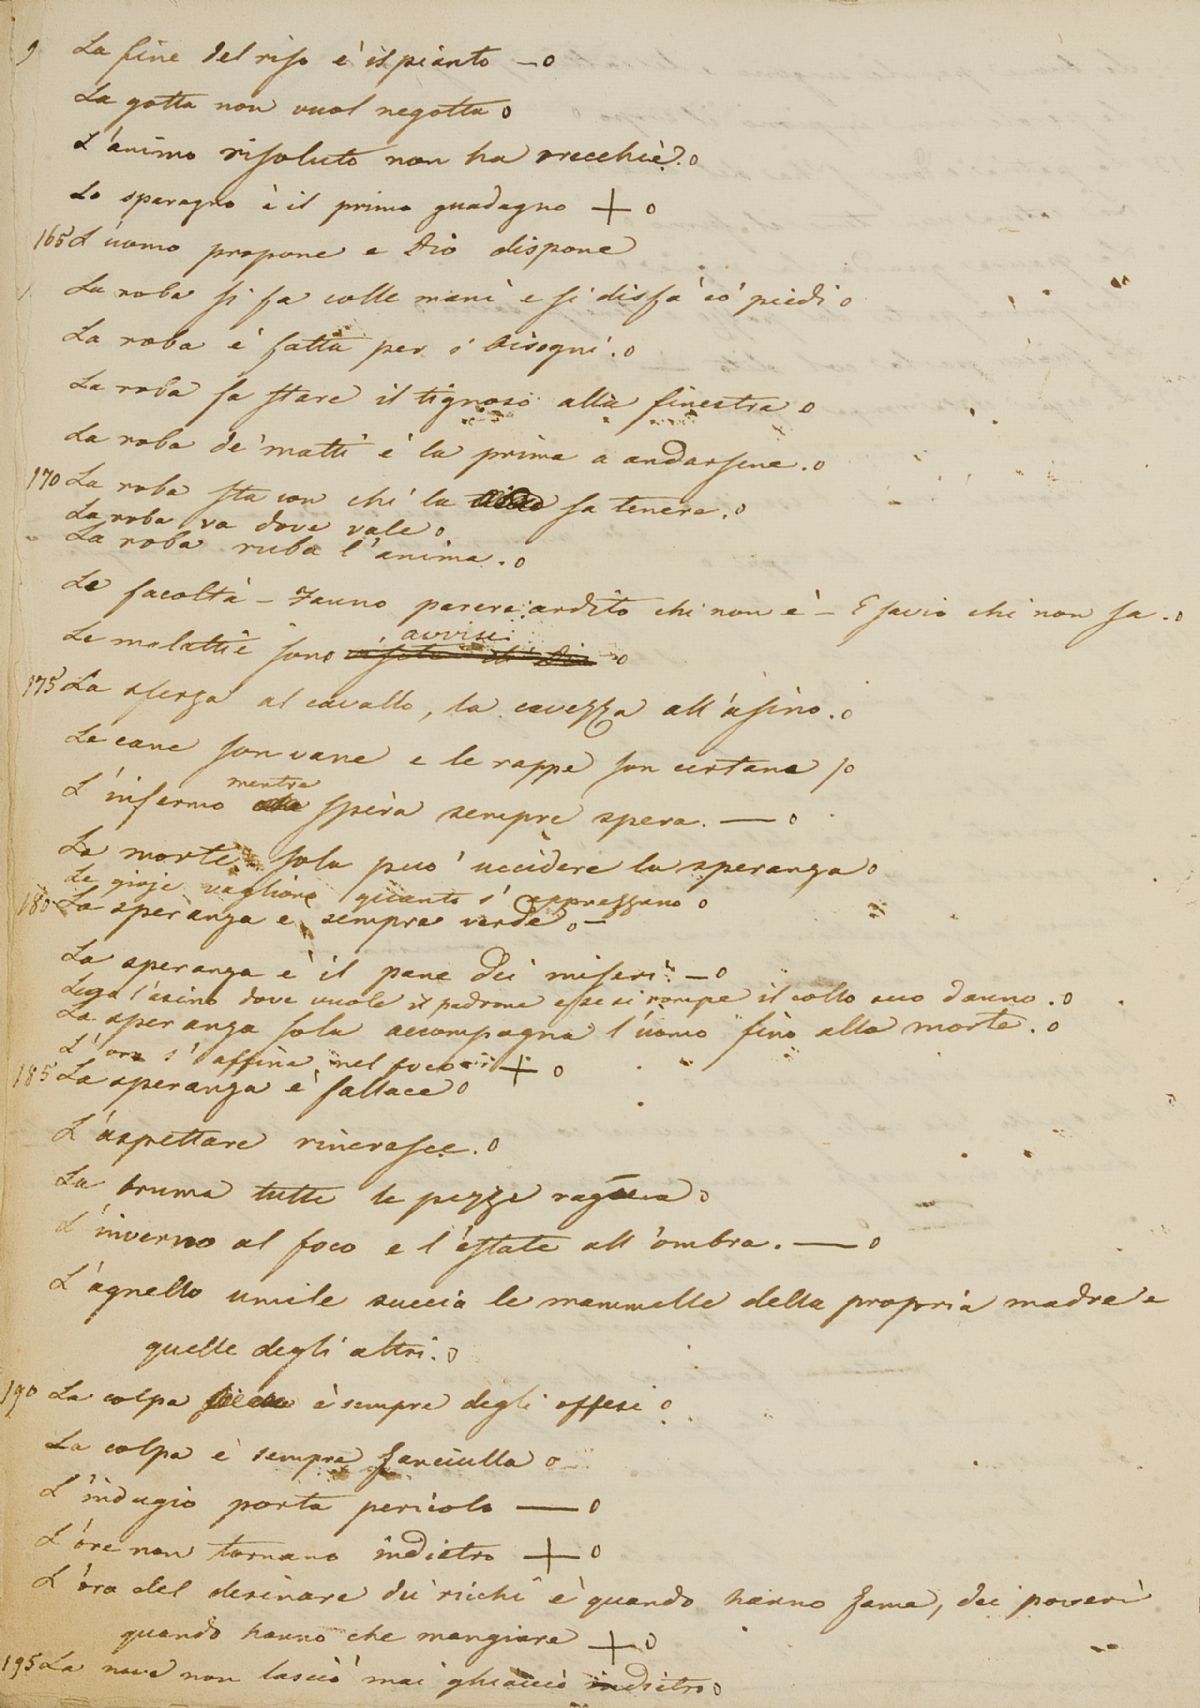 La fine del riso è il pianto —o
La gotta non vuol negotta o
L'animo risoluto non ha orecchie. o
Lo sparagno è il primo guadagno + o
165 L'uomo propone e Dio dispone
La roba si fa colle mani e si disfà co' piedi o
La roba è fatta per i bisogni. o
La roba fa stare il tignoso alla finestra o
La roba de' matti è la prima a andarsene. o
170 La roba sta con chi la sa tenere. o
La roba va dove vale o
La roba ruba l'anima. o
Le facoltà — Fanno parere ardito chi non è — E savio chi non sa. o
avvisi
Le malattie sono o
175 La sferza al cavallo, la cavezza all'asino. o
Le cane son vane e le rappe son certane o
mentre
L'infermo spira sempre spera. — o
La morte sola può uccidere la speranza o
Le gioje vagliono quanto s'apprezzano o
180 La speranza è sempre verde o —
La speranza è il pane dei miseri — o
Lega l'asino dove vuole il padrone e se si rompe il collo suo danno. o
La speranza sola accompagna l'uomo fino alla morte. o
L'oro s'affina nel foco + o
185 La speranza è fallace o
L'aspettare rincresce. o
La bruma tutte le pezze o
L'inverno al foco e l'estate all'ombra. — o
L'agnello umile succia le mammelle della propria madre e
quelle degli altri. o
190 La colpa è sempre degli offesi o
La colpa è sempre fanciulla o
L'indugio porta pericolo — o
L'ore non tornano indietro + o
L'ora del desinare du' ricchi è quando hanno fame, dei poveri
quando hanno che mangiare + o
195 La neve non lasciò mai ghiaccio indietro o